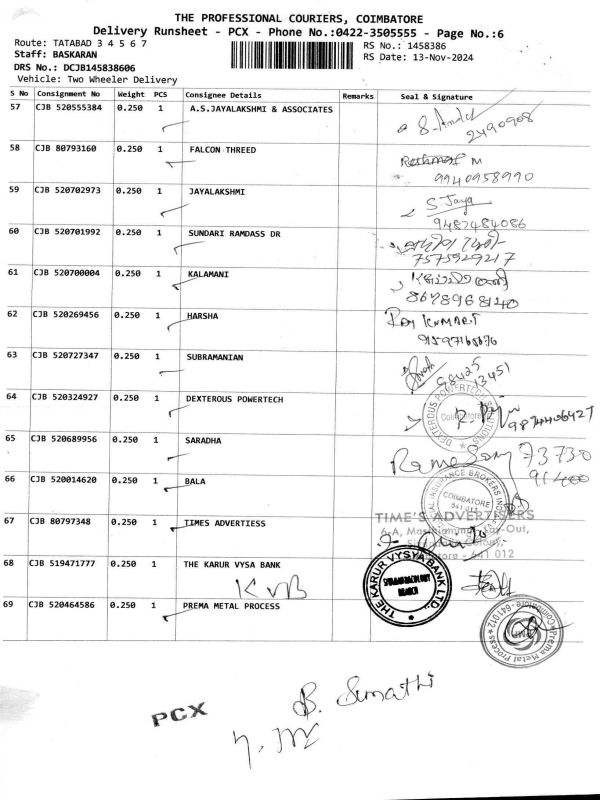 THE PROFESSIONAL COURIERS, COIMBATORE
Delivery Runsheet - PCX - Phone No.:0422-3505555 - Page No.:6
Route: TATABAD 3 4 5 6 7
RS No.: 1458386
Staff: BASKARAN
RS Date: 13-Nov-2024
DRS No.: DCJB145838606
Vehicle: Two Wheeler Delivery
S No Consignment No Weight PCS Consignee Details Remarks Seal & Signature
57 CJB 520555384 0.250 1 A.S.JAYALAKSHMI & ASSOCIATES
2490908
58 CJB 80793160 0.250 1 FALCON THREED
M
9940958990
59 CJB 520702973 0.250 1 JAYALAKSHMI
S. Jaya
9487484086
60 CJB 520701992 0.250 1 SUNDARI RAMDASS DR
7575929217
61 CJB 520700004 0.250 1 KALAMANI
8678968140
62 CJB 520269456 0.250 1 HARSHA
63 CJB 520727347 0.250 1 SUBRAMANIAN
98425
13451
64 CJB 520324927 0.250 1 DEXTEROUS POWERTECH
DEXTEROUS POWERTECH SOLUTIONS
Coimbatore
65 CJB 520689956 0.250 1 SARADHA
73730
91400
66 CJB 520014620 0.250 1 BALA
INSURANCE BROKERS
COIMBATORE
641 012
67 CJB 80797348 0.250 1 TIMES ADVERTIESS
TIME'S ADVERTISERS
6-A, Lay-Out,
641 012
68 CJB 519471777 0.250 1 THE KARUR VYSA BANK
KVB
THE KARUR VYSYA BANK LTD.
BRANCH
69 CJB 520464586 0.250 1 PREMA METAL PROCESS
Prema Metal Process Coimbatore-641012
PCX
B. Sumathi